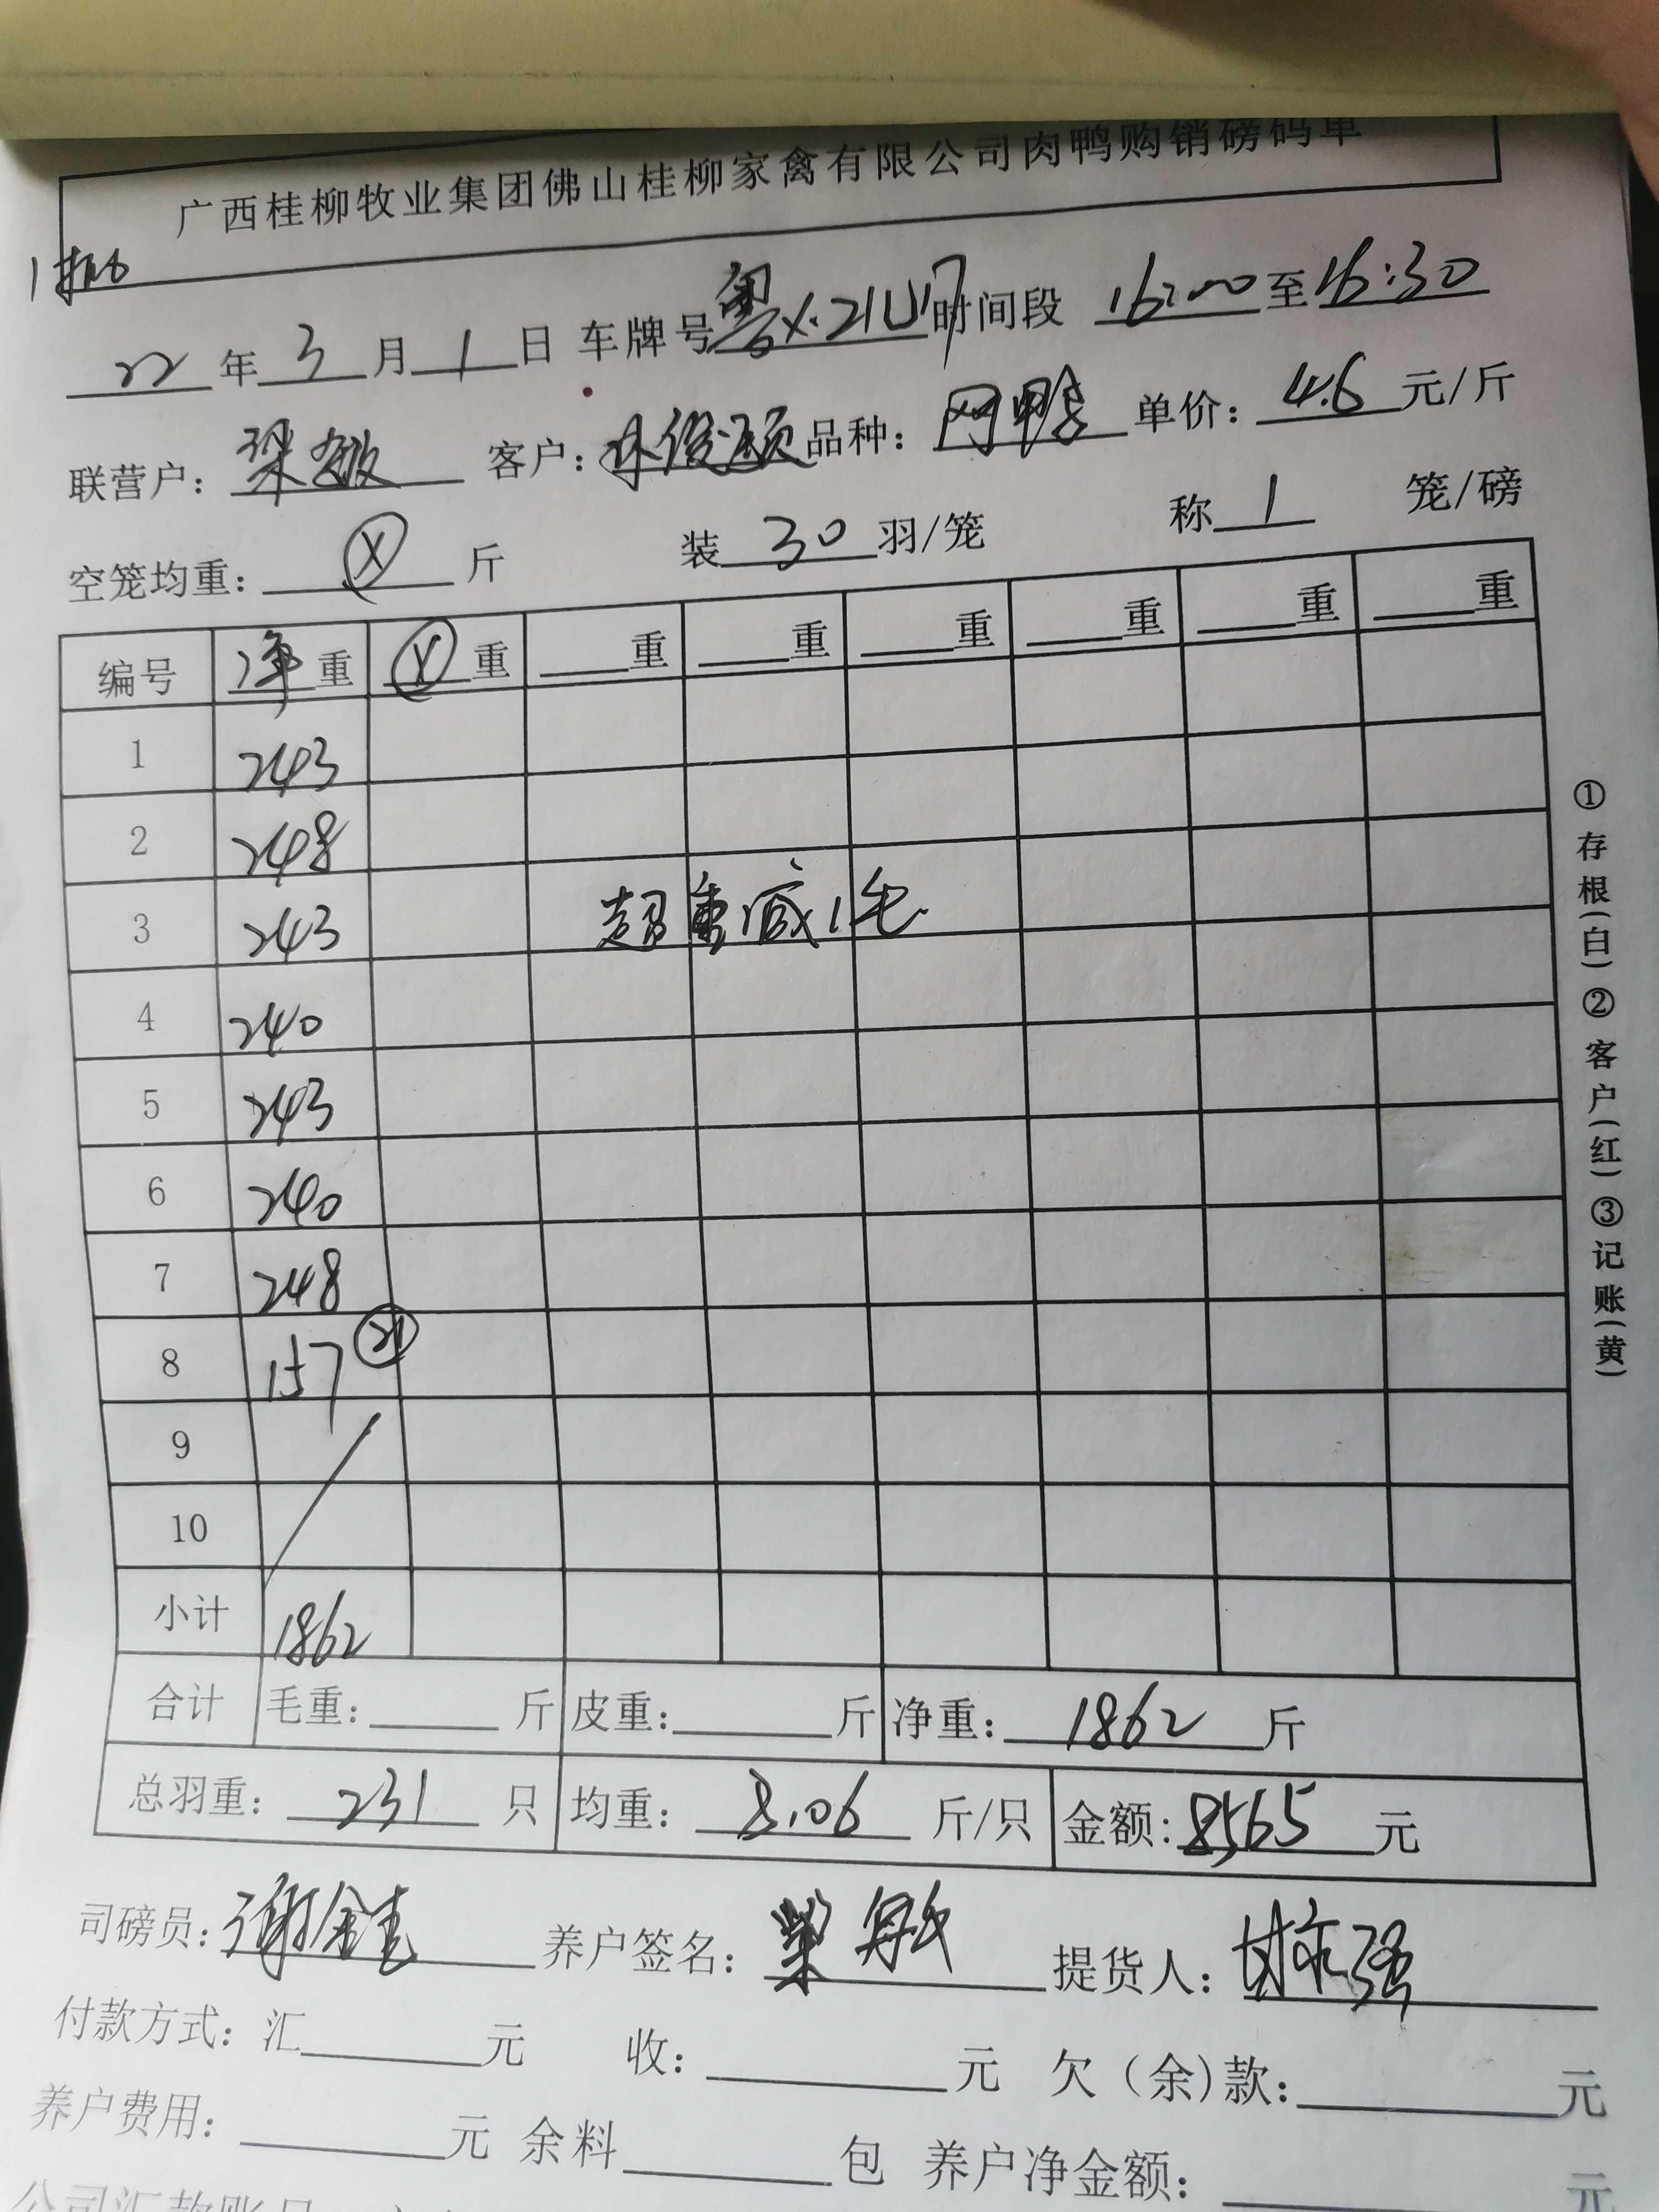 广西桂柳牧业集团佛山桂柳家禽有限公司肉鸭购销磅码单
22年3月1日 车牌号粤X·21U17时间段 16:00至16:30
联营户：梁敏 客户：林俊颖品种：网鸭 单价：4.6元/斤
空笼均重：X斤 装30羽/笼 称1笼/磅
编号 净重 X重 重 重 重 重 重 重
1 243
2 248
3 243 超重减1毛
4 240
5 243
6 240
7 248
8 157 21
9
10
小计 1862
合计 毛重： 斤 皮重： 斤 净重：1862斤
总羽重：231只 均重：8.06斤/只 金额：8565元
司磅员：谢金 养户签名：梁敏 提货人：强
付款方式：汇 元 收： 元 欠（余)款： 元
养户费用： 元 余料 包 养户净金额： 元
公司汇款账号
①存根(白)②客户(红)③记账(黄)